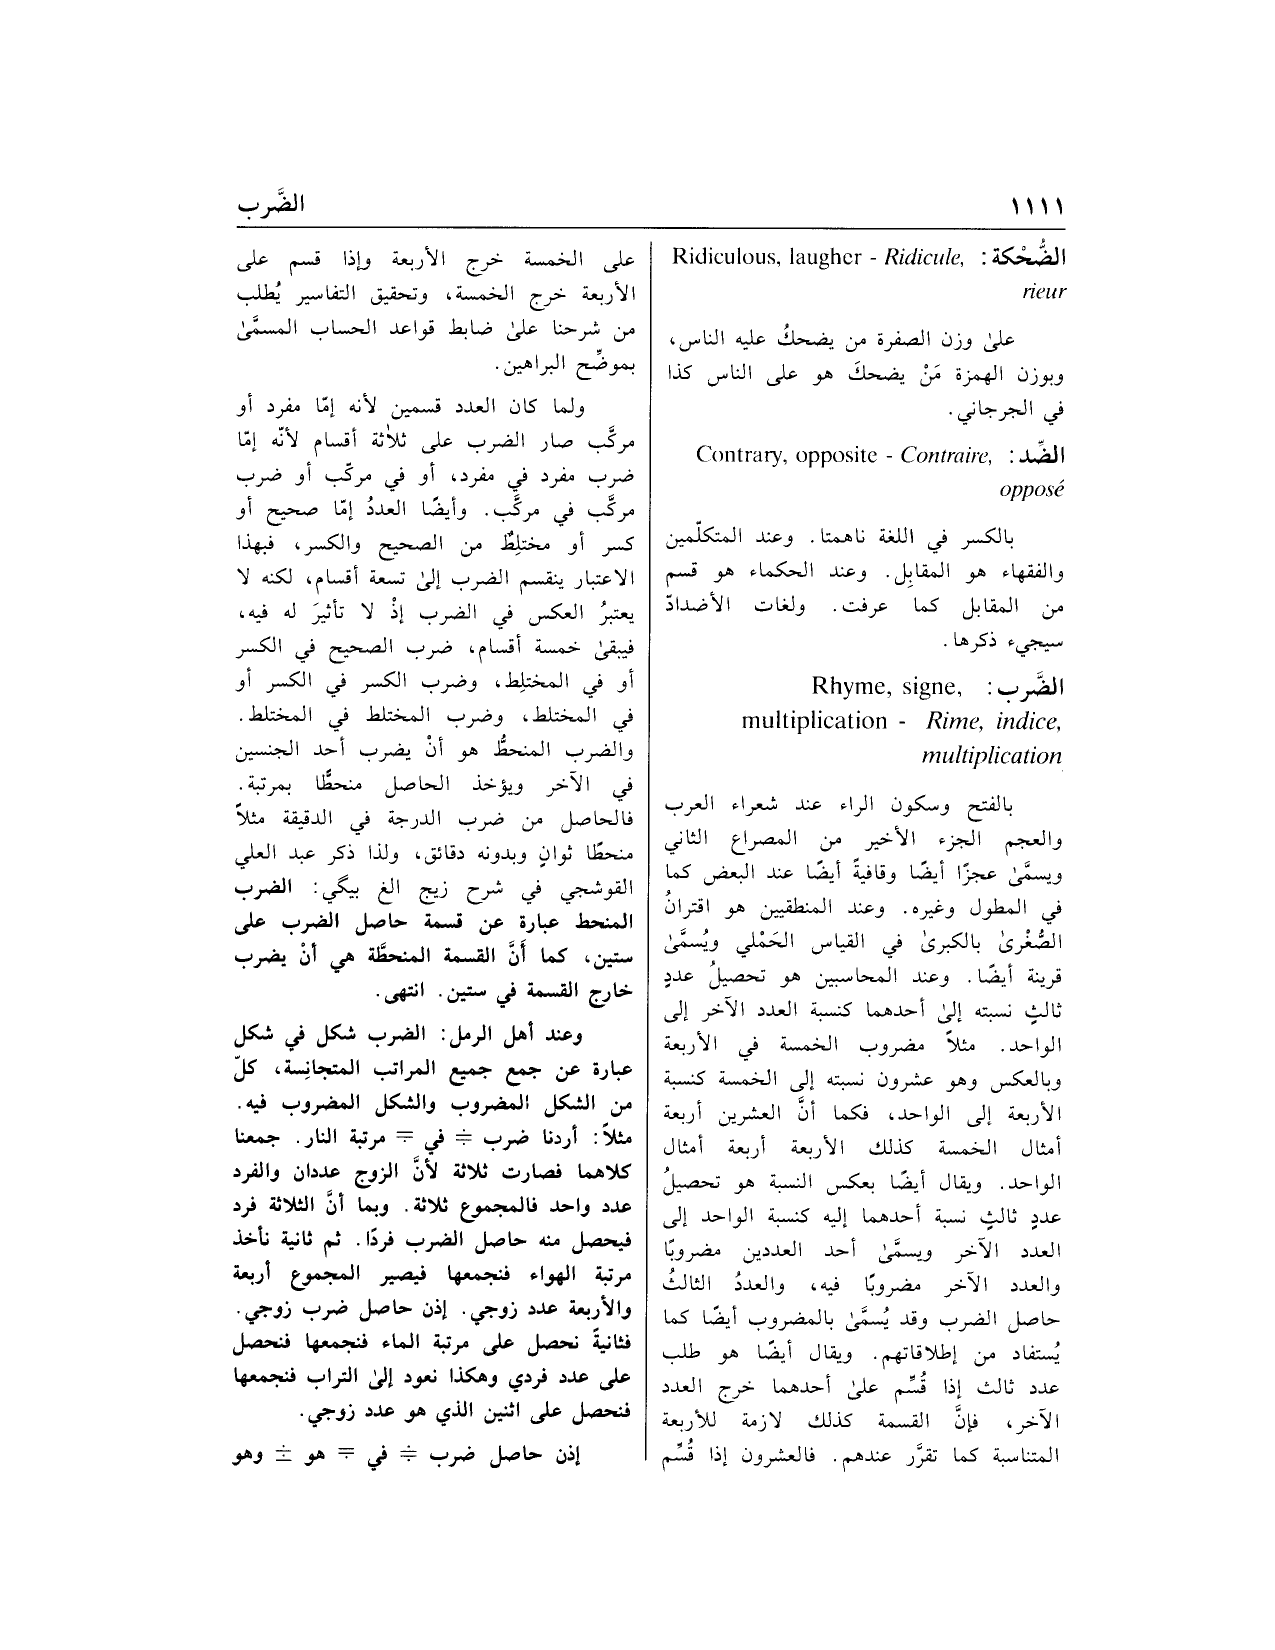 ١١١١
الضَّرب
الضُّحْكة: Ridiculous, laugher - Ridicule,
rieur
علىٰ وزن الصفرة من يضحكُ عليه الناس،
وبوزن الهمزة مَنْ يضحكَ هو على الناس كذا
في الجرجاني.
الضِّد: Contrary, opposite - Contraire,
opposé
بالكسر في اللغة ناهمتا. وعند المتكلّمين
والفقهاء هو المقابِل. وعند الحكماء هو قسم
من المقابل كما عرفت. ولغات الأضدادّ
سيجيء ذكرها.
الضَّرب: Rhyme, signe,
multiplication - Rime, indice,
multiplication
بالفتح وسكون الراء عند شعراء العرب
والعجم الجزء الأخير من المصراع الثاني
ويسمَّىٰ عجزًا أيضًا وقافيةً أيضًا عند البعض كما
في المطول وغيره. وعند المنطقيين هو اقترانُ
الصُّغْرىٰ بالكبرىٰ في القياس الحَمْلي ويُسمَّىٰ
قرينة أيضًا. وعند المحاسبين هو تحصيلُ عددٍ
ثالثٍ نسبته إلىٰ أحدهما كنسبة العدد الآخر إلى
الواحد. مثلاً مضروب الخمسة في الأربعة
وبالعكس وهو عشرون نسبته إلى الخمسة كنسبة
الأربعة إلى الواحد، فكما أنَّ العشرين أربعة
أمثال الخمسة كذلك الأربعة أربعة أمثال
الواحد. ويقال أيضًا بعكس النسبة هو تحصيلُ
عددٍ ثالثٍ نسبة أحدهما إليه كنسبة الواحد إلى
العدد الآخر ويسمَّىٰ أحد العددين مضروبًا
والعدد الآخر مضروبًا فيه، والعددُ الثالثُ
حاصل الضرب وقد يُسمَّىٰ بالمضروب أيضًا كما
يُستفاد من إطلاقاتهم. ويقال أيضًا هو طلب
عدد ثالث إذا قُسِّم علىٰ أحدهما خرج العدد
الآخر، فإنَّ القسمة كذلك لازمة للأربعة
المتناسبة كما تقرَّر عندهم. فالعشرون إذا قُسِّم
على الخمسة خرج الأربعة وإذا قسم على
الأربعة خرج الخمسة، وتحقيق التفاسير يُطلب
من شرحنا علىٰ ضابط قواعد الحساب المسمَّىٰ
بموضِّح البراهين.
ولما كان العدد قسمين لأنه إمّا مفرد أو
مركَّب صار الضرب على ثلاثة أقسام لأنّه إمّا
ضرب مفرد في مفرد، أو في مركّب أو ضرب
مركَّب في مركَّب. وأيضًا العددُ إمّا صحيح أو
كسر أو مختلِطٌ من الصحيح والكسر، فبهذا
الاعتبار ينقسم الضرب إلىٰ تسعة أقسام، لكنه لا
يعتبرُ العكس في الضرب إذْ لا تأثيرَ له فيه،
فيبقىٰ خمسة أقسام، ضرب الصحيح في الكسر
أو في المختلِط، وضرب الكسر في الكسر أو
في المختلط، وضرب المختلط في المختلط.
والضرب المنحطُّ هو أنْ يضرب أحد الجنسين
في الآخر ويؤخذ الحاصل منحطًّا بمرتبة.
فالحاصل من ضرب الدرجة في الدقيقة مثلاً
منحطًا ثوانٍ وبدونه دقائق، ولذا ذكر عبد العلي
القوشجي في شرح زيج الغ بيگي: الضرب
المنحط عبارة عن قسمة حاصل الضرب على
ستين، كما أَنَّ القسمة المنحطَّة هي أنْ يضرب
خارج القسمة في ستين. انتهى.
وعند أهل الرمل: الضرب شكل في شكل
عبارة عن جمع جميع المراتب المتجانِسة، كلّ
من الشكل المضروب والشكل المضروب فيه.
مثلاً: أردنا ضرب في مرتبة النار. جمعنا
كلاهما فصارت ثلاثة لأنَّ الزوج عددان والفرد
عدد واحد فالمجموع ثلاثة. وبما أنَّ الثلاثة فرد
فيحصل منه حاصل الضرب فردًا. ثم ثانية نأخذ
مرتبة الهواء فنجمعها فيصير المجموع أربعة
والأربعة عدد زوجي. إذن حاصل ضرب زوجي.
فثانيةً نحصل على مرتبة الماء فنجمعها فنحصل
على عدد فردي وهكذا نعود إلىٰ التراب فنجمعها
فنحصل على اثنين الذي هو عدد زوجي.
إذن حاصل ضرب في هو وهو